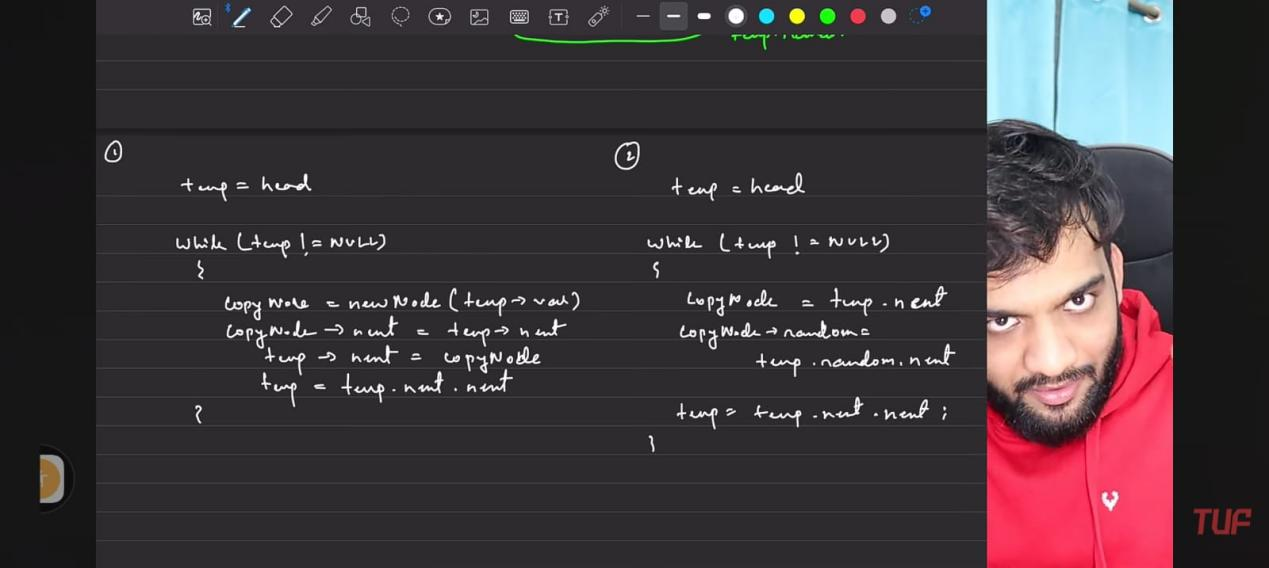 ①
temp = head
while (temp != NULL)
{
copyNode = newNode (temp → val)
copyNode → next = temp → next
temp → next = copyNode
temp = temp . next . next
}
②
temp = head
while (temp != NULL)
{
copyNode = temp . next
copyNode → random =
temp . random . next
temp = temp . next . next ;
}
TUF